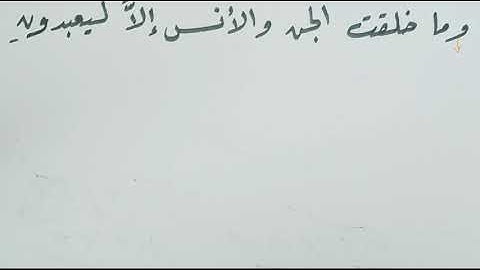 وما خلقت الجن والأنس إلاَّ ليعبدونِ